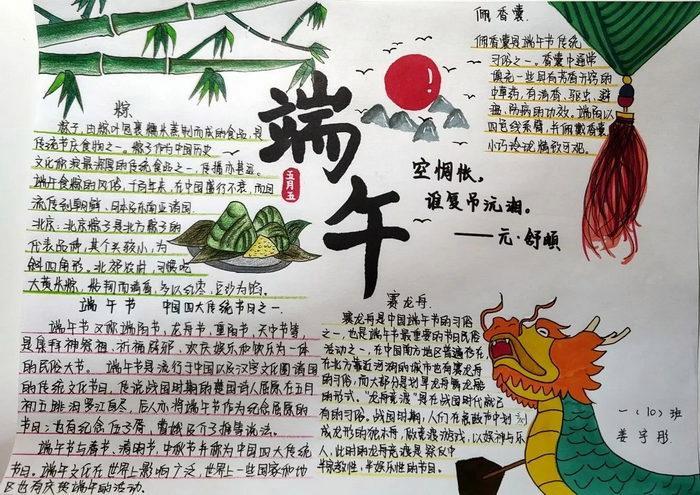 佩香囊
佩香囊是端午节传统
习俗之一。香囊中通常
填充一些具有芳香开窍的
中草药,有清香、驱虫、避
瘟、防病的功效。端阳以
小巧玲珑
粽
粽子,由粽叶包裹糯米蒸制而成的食品,是
传统节庆食物之一。粽子作为中国历史
文化
端午食粽的风俗,千百年来,在中国盛行不衰,而且
流传到朝鲜、日本及东南亚诸国.
北京:北京粽子是北方粽子的
代表品种,其个头较小,为
斜四角形。北郊农村,习惯吃
大黄米粽,粘韧而清香,多以红枣、豆沙为馅。
端午
五月五
空惆怅。
谁复吊沅湘。
——元·舒頔
端午节 中国四大传统节日之一.
端午节又称端阳节,龙舟节,重阳节,天中节等,
是集拜神祭祖、祈福辟邪、欢庆娱乐和饮食为一体
的民俗大节。端午节是流行于中国以及汉字文化圈诸国
的传统文化节日,传说战国时期的楚国诗人屈原在五月
初五跳汨罗江自尽,后人亦将端午节作为纪念屈原的
节日;也有纪念伍子胥、曹娥及介子推等说法。
端午节与春节、清明节、中秋节并称为中国四大传统
节日。端午文化在世界上影响广泛,世界上一些国家和地
区也有庆贺端午的活动。
赛龙舟
赛龙舟是中国端午节的习俗
之一,也是端午节最重要的节日民俗
活动之一,在中国南方地区普遍存在,
在北方靠近河湖的城市也有赛龙舟
的习俗,而大部分是划旱龙舟舞龙船
的形式。“龙舟竞渡”早在战国时代就已
有的习俗。战国时期,人们在急鼓声中划刻
成龙形的独木舟,做竞渡游戏,以娱神与乐
人,此时的龙舟竞渡是祭仪中
半宗教性,半娱乐性的节目。
一(10)班
姜宇彤